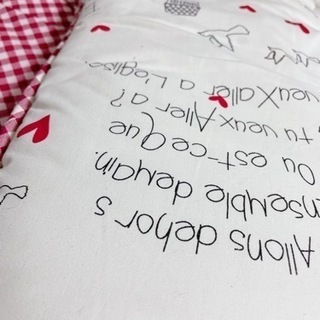 Allons dehor s
ensemble demain.
Ou est-ceque
tu veux Aller a?
veuxaller a L'eglise.